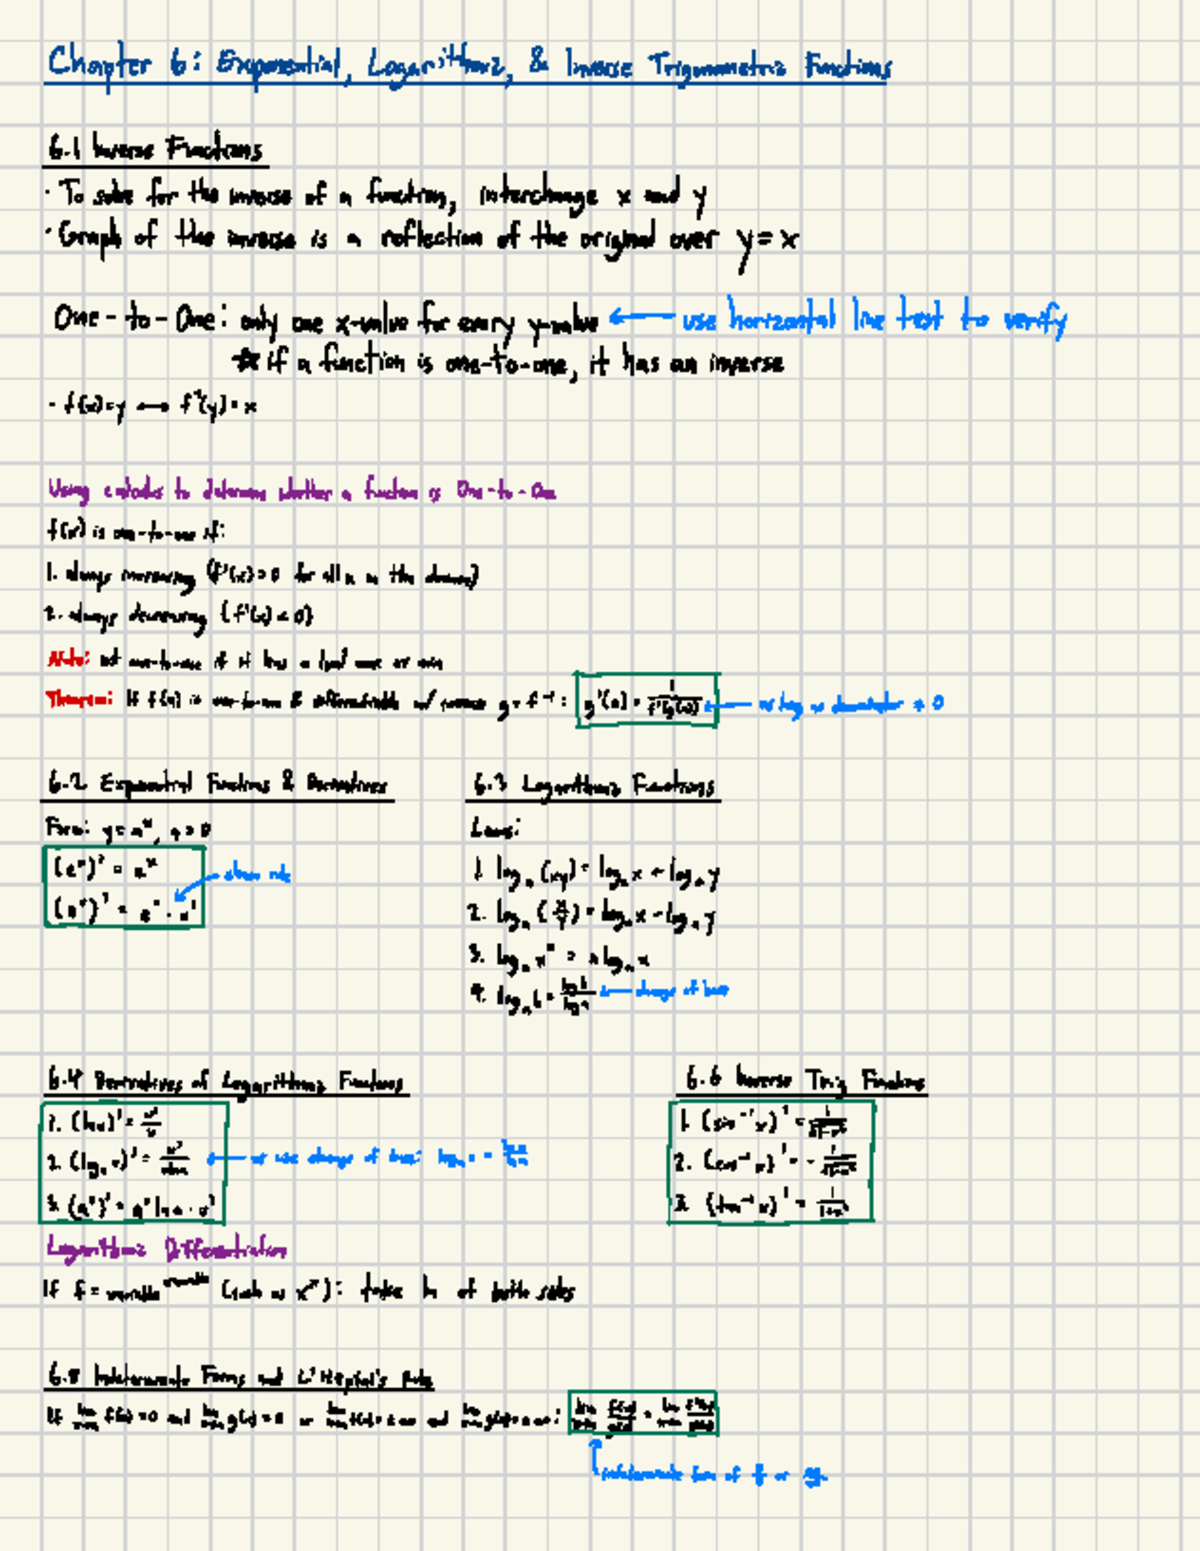 Chapter 6: Exponential, Logarithmic, & Inverse Trigonometric Functions
6.1 Inverse Functions
· To solve for the inverse of a function, interchange x and y
· Graph of the inverse is a reflection of the original over y = x
One-to-One: only one x-value for every y-value ← use horizontal line test to verify
☆ if a function is one-to-one, it has an inverse
- f(x)=y ⟷ f⁻¹(y)=x
Using calculus to determine whether a function is One-to-One
f(x) is one-to-one if:
1. always increasing (f'(x)>0 for all x in the domain)
2. always decreasing (f'(x)<0)
Note: not one-to-one if it has a local max or min
Theorem: If f(x) is one-to-one & differentiable w/ inverse g = f⁻¹: g'(a) = 1/f'(g(a)) ← as long as denominator ≠ 0
6.2 Exponential Functions & Derivatives
Form: y = aˣ, a > 0
(eˣ)' = eˣ
← chain rule
6.3 Logarithmic Functions
Laws:
1. logₐ(xy) = logₐx + logₐy
2. logₐ(x/y) = logₐx - logₐy
3. logₐxⁿ = n logₐx
4. logₐb = log b/log a ← change of base
6.4 Derivatives of Logarithmic Functions
1. (ln u)' = u'/u
2.
← or use change of base:
3. (aᵘ)' = aᵘ ln a · u'
Logarithmic Differentiation
If f = variable^variable (such as xˣ): take ln of both sides
6.6 Inverse Trig Functions
1. (sin⁻¹x)' = 1/√(1-x²)
2. (cos⁻¹x)' = -1/√(1-x²)
3. (tan⁻¹x)' = 1/(1+x²)
6.8 Indeterminate Forms and L'Hopital's Rule
If lim f(x)=0 and lim g(x)=0 or lim f(x)=±∞ and lim g(x)=±∞: lim f(x)/g(x) = lim f'(x)/g'(x)
indeterminate form of 0/0 or ∞/∞